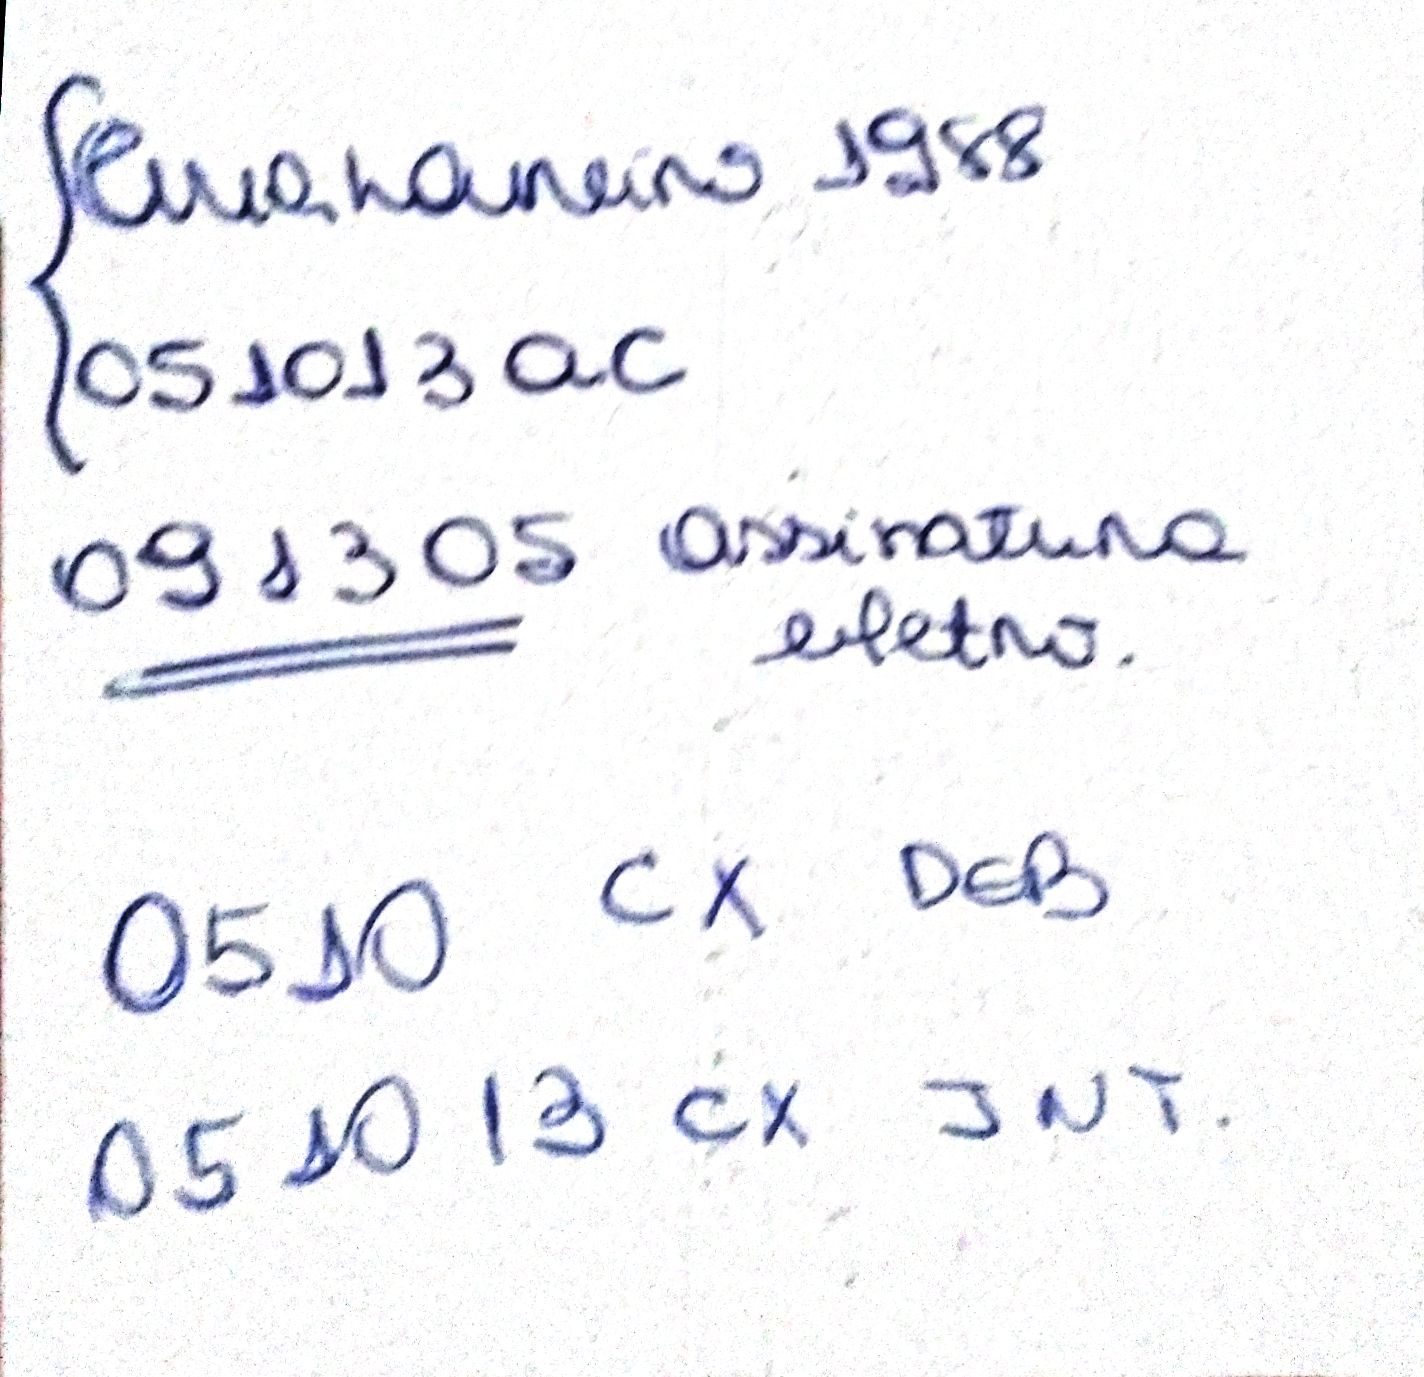 1988
051013ac
091305 assinatura
eletro.
0510 CX DEB
051013 CX INT.